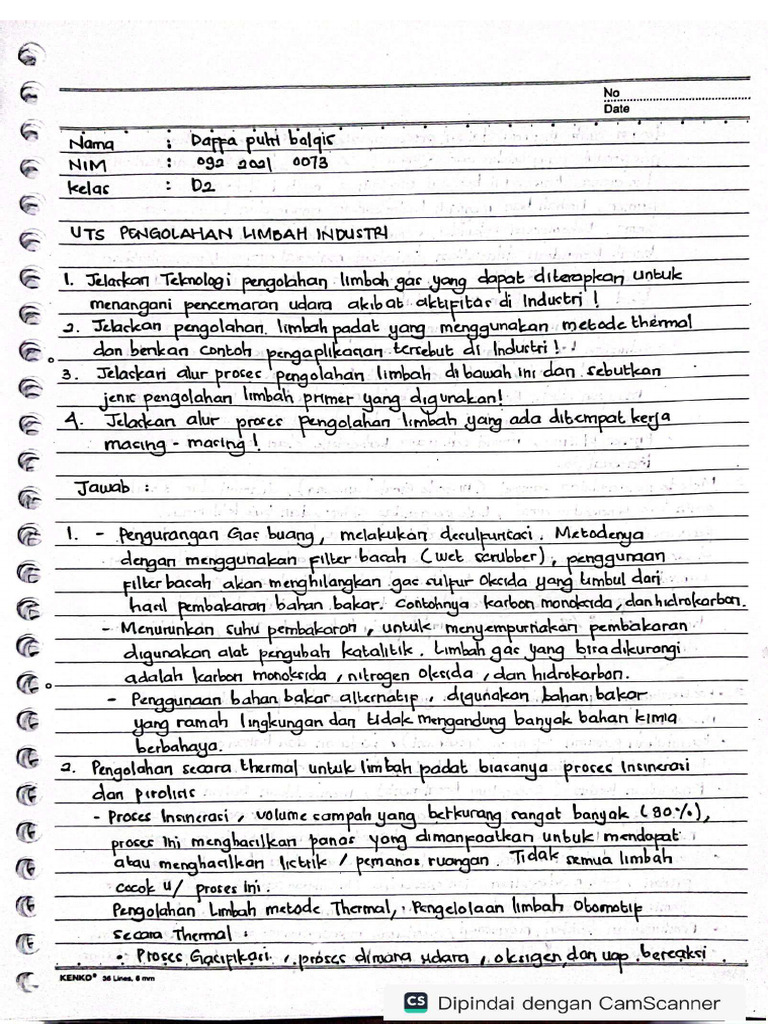 No
Date
Nama : Daffa putri balqis
NIM : 092 2021 0073
Kelas : D2
UTS PENGOLAHAN LIMBAH INDUSTRI
1. Jelaskan Teknologi pengolahan limbah gas yang dapat diterapkan untuk
menangani pencemaran udara akibat aktifitas di Industri !
2. Jelaskan pengolahan limbah padat yang menggunakan metode thermal
dan berikan contoh pengaplikasian tersebut di Industri !
3. Jelaskan alur proses pengolahan limbah dibawah ini dan sebutkan
jenis pengolahan limbah primer yang digunakan!
4. Jelaskan alur proses pengolahan limbah yang ada ditempat kerja
masing - masing !
Jawab :
1. - Pengurangan Gas buang, melakukan desulfurisasi. Metodenya
dengan menggunakan filter basah (wet scrubber), penggunaan
filter basah akan menghilangkan gas sulfur oksida yang timbul dari
hasil pembakaran bahan bakar. Contohnya karbon monoksida, dan hidrokarbon.
- Menurunkan suhu pembakaran, untuk menyempurnakan pembakaran
digunakan alat pengubah katalitik. Limbah gas yang bisa dikurangi
adalah karbon monoksida, nitrogen oksida, dan hidrokarbon.
- Penggunaan bahan bakar alternatif, digunakan bahan bakar
yang ramah lingkungan dan tidak mengandung banyak bahan kimia
berbahaya.
2. Pengolahan secara thermal untuk limbah padat biasanya proses Insinerasi
dan pirolisis
- Proses Insinerasi, volume sampah yang berkurang sangat banyak (90%),
proses ini menghasilkan panas yang dimanfaatkan untuk mendapat
atau menghasilkan listrik / pemanas ruangan. Tidak semua limbah
cocok u/ proses ini.
Pengolahan Limbah metode Thermal, Pengelolaan limbah Otomotif
secara Thermal :
• Proses Gasifikasi, proses dimana udara, oksigen, dan uap bereaksi
KENKO® 36 Lines, 8 mm
CS Dipindai dengan CamScanner